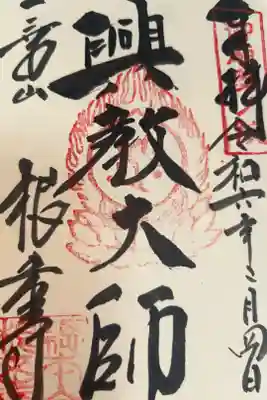 奉拝 令和六年二月四日
興教大師
一乗山
根来寺